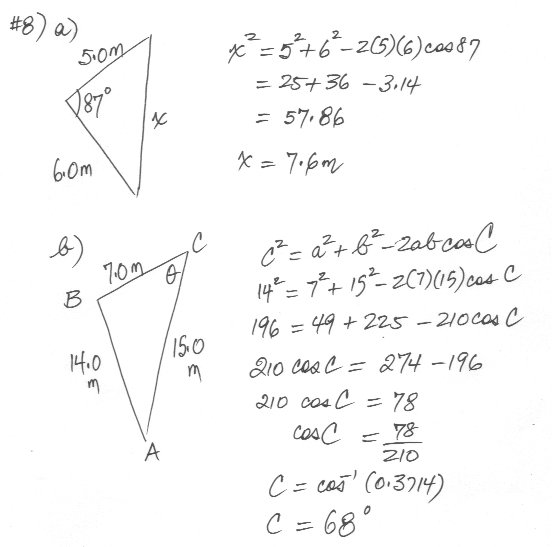 #8) a)
5.0m
87°
x
6.0m
x² = 5² + 6² - 2(5)(6)cos87
= 25 + 36 - 3.14
= 57.86
x = 7.6m
b)
C
7.0m
θ
B
14.0
m
15.0
m
A
c² = a² + b² - 2ab cos C
14² = 7² + 15² - 2(7)(15)cos C
196 = 49 + 225 - 210cos C
210 cos C = 274 - 196
210 cos C = 78
cos C = 78/210
C = cos⁻¹ (0.3714)
C = 68°